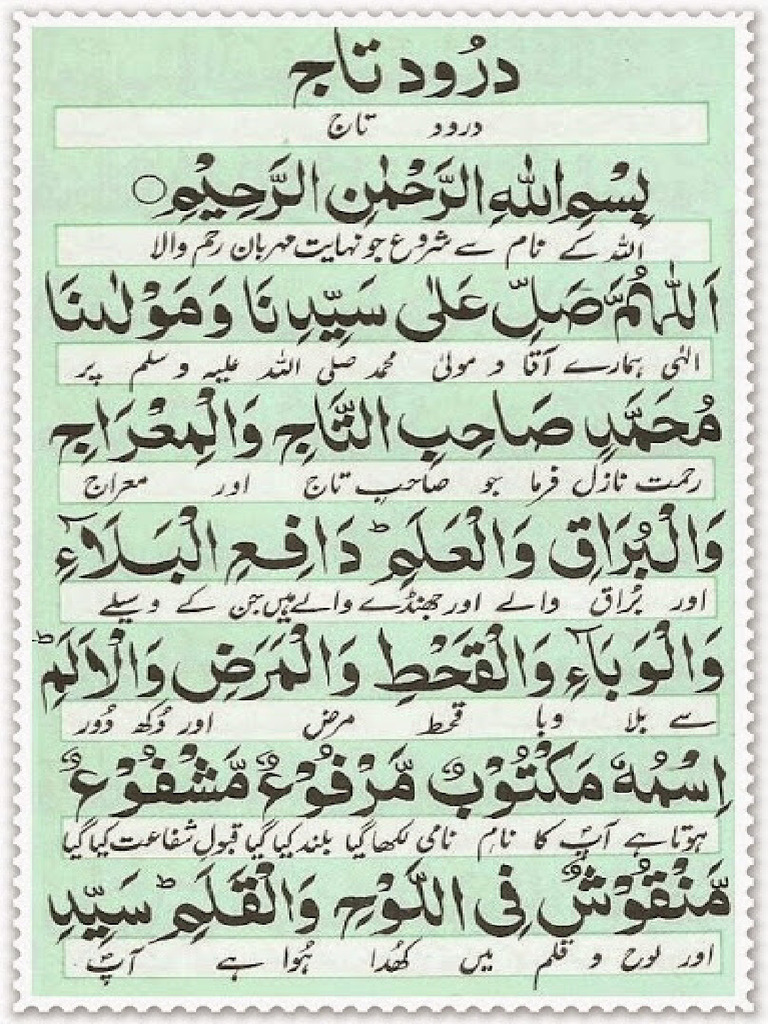 دُرُود تاج
درود تاج
بِسْمِ اللهِ الرَّحْمٰنِ الرَّحِيْمِ○
اللہ کے نام سے شروع جو نہایت مہربان رحم والا
اَللّٰهُمَّ صَلِّ عَلٰى سَيِّدِنَا وَمَوْلٰىنَا
الٰہی ہمارے آقا و مولیٰ محمد صلی اللہ علیہ وسلم پر
مُحَمَّدٍ صَاحِبِ التَّاجِ وَالْمِعْرَاجِ
رحمت نازل فرما جو صاحبِ تاج اور معراج
وَالْبُرَاقِ وَالْعَلَمِ ؕ دَافِعِ الْبَلَآءِ
اور بُراق والے اور جھنڈے والے ہیں جن کے وسیلے
وَالْوَبَآءِ وَالْقَحْطِ وَالْمَرَضِ وَالْاَلَمِ ؕ
سے بلا وبا قحط مرض اور دُکھ دُور
اِسْمُهٗ مَكْتُوْبٌ مَّرْفُوْعٌ مَّشْفُوْعٌ
ہوتا ہے آپؐ کا نام نامی لکھا گیا بلند کیا گیا قبول شفاعت کیا گیا
مَّنْقُوْشٌ فِى اللَّوْحِ وَالْقَلَمِ ؕ سَيِّدِ
اور لوح و قلم میں کھُدا ہُوا ہے آپؐ